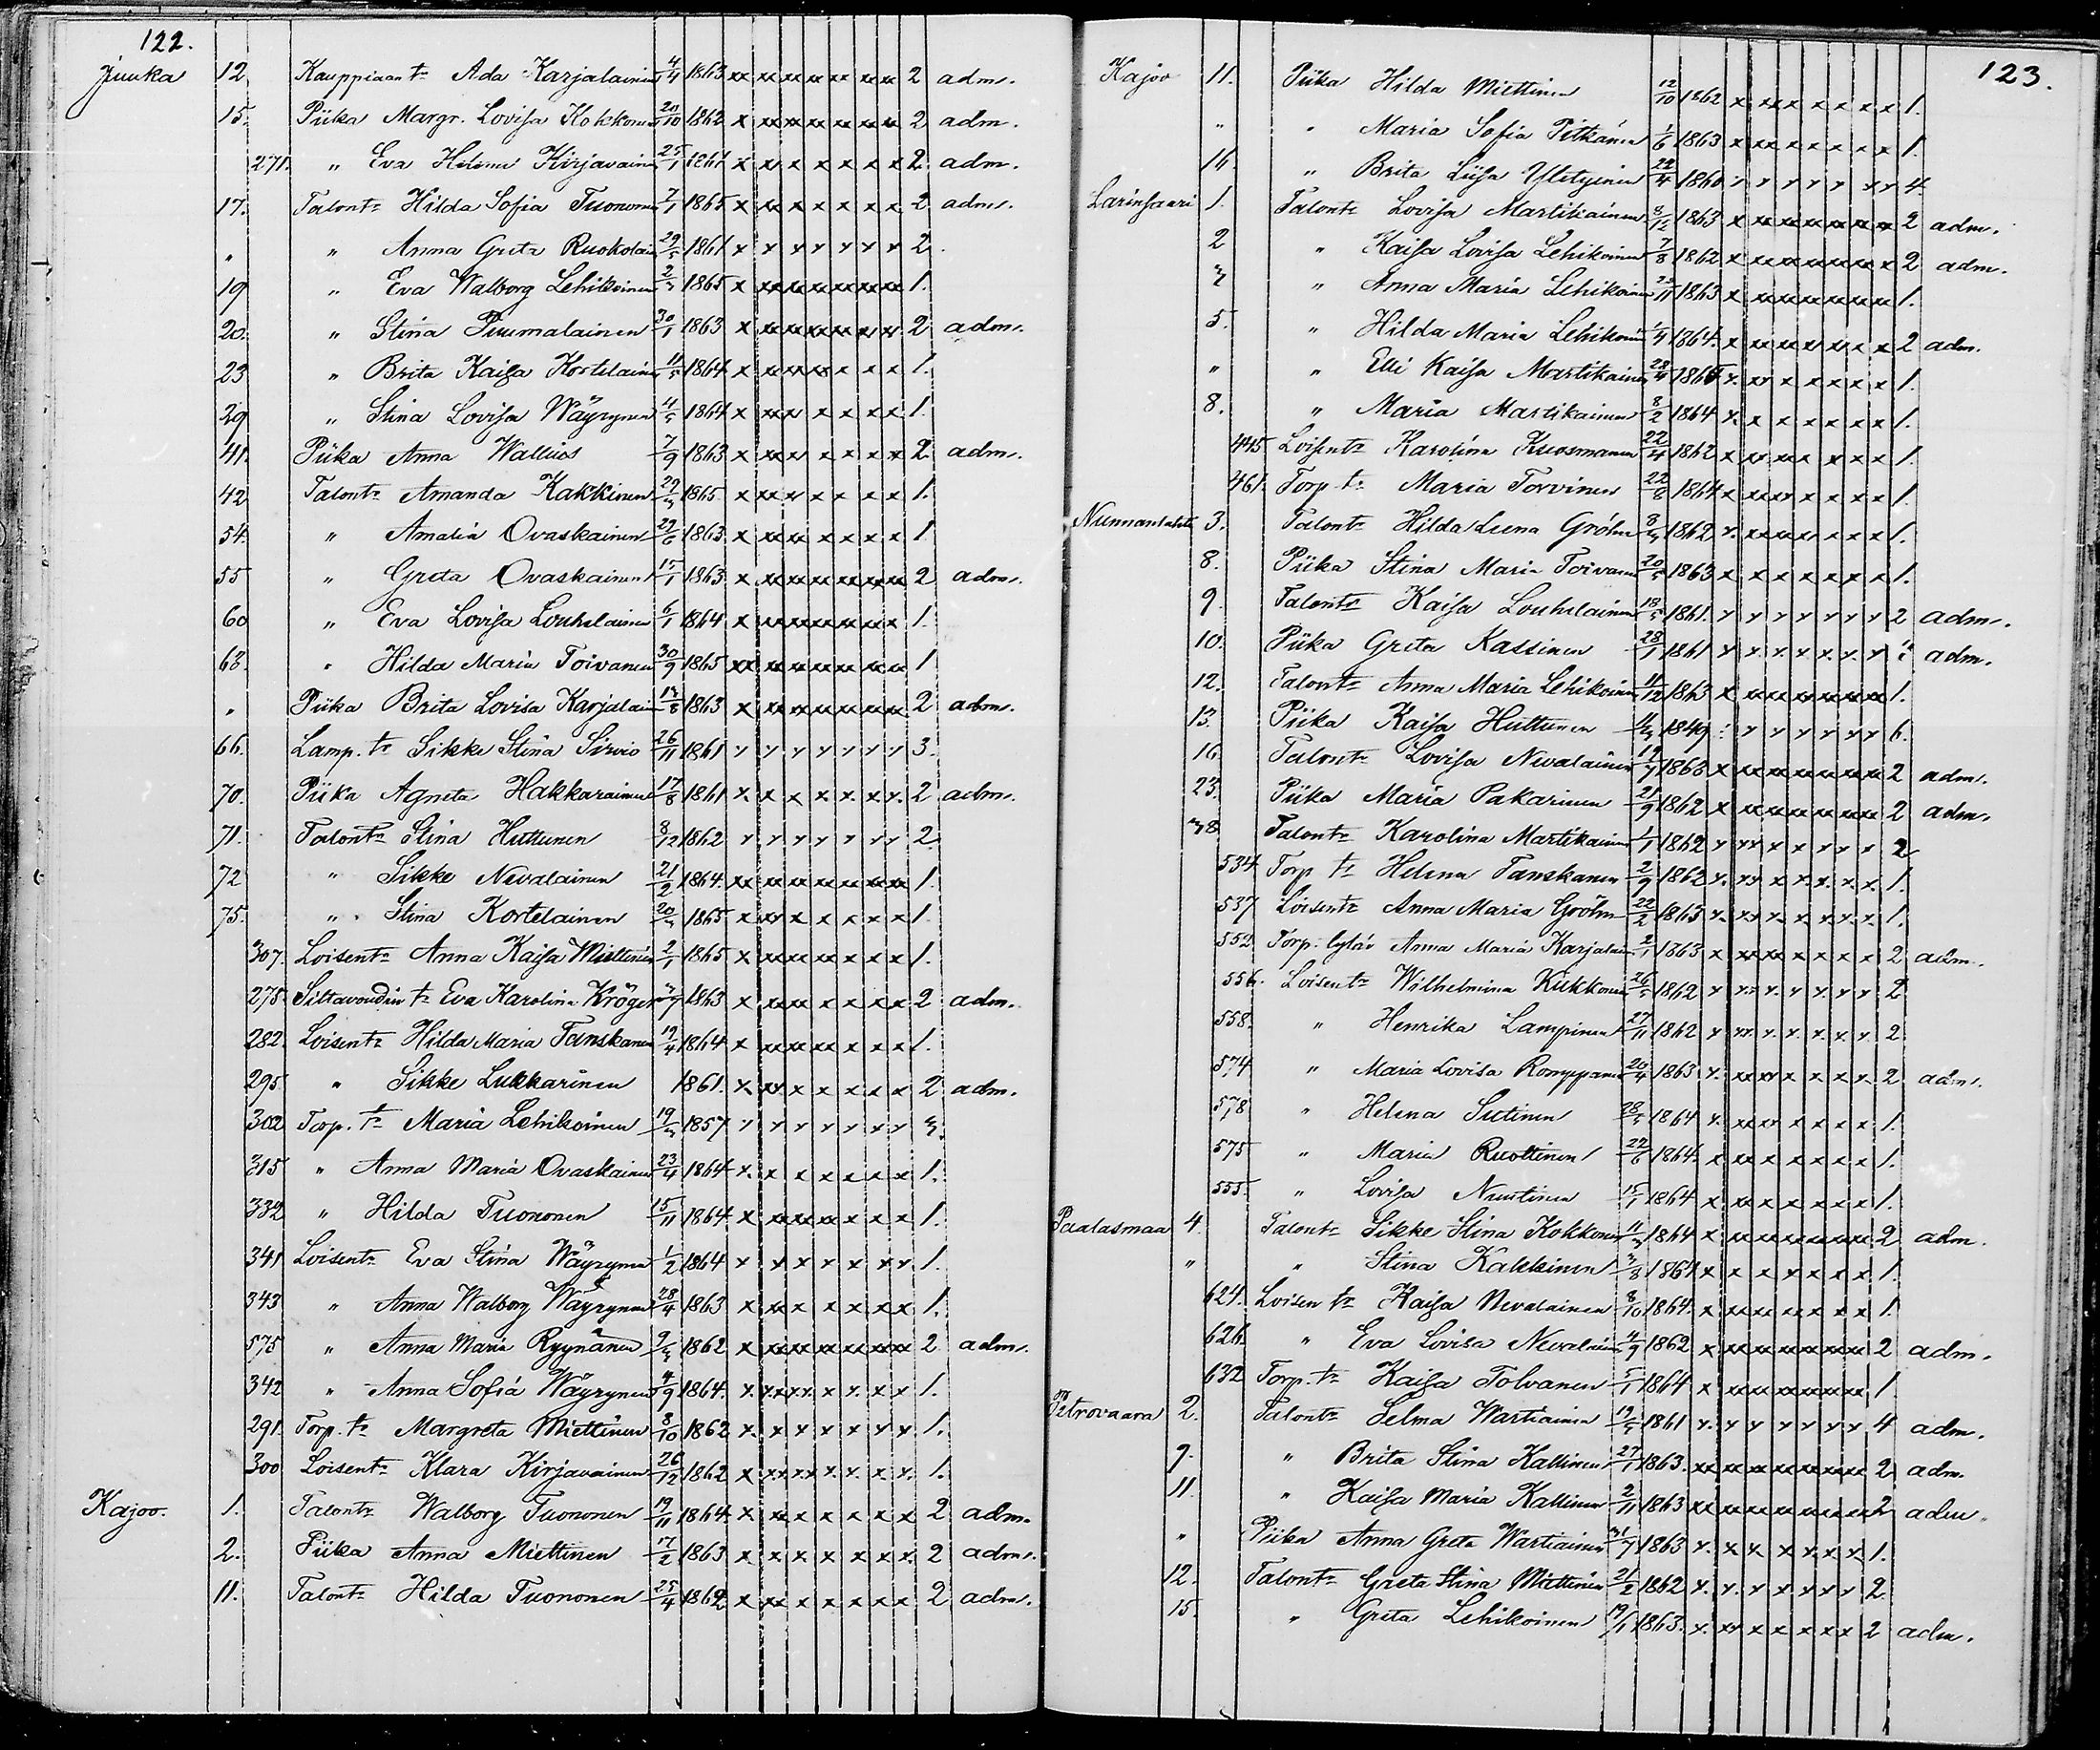 122.
Juuka 12 Kauppiaan tr Ada Karjalainen 4/4 1863 xx xx xx xx xx xx 2 adm.
15. Piika Margr. Lovisa Kokkonen 20/10 1862 x xx xx xx xx xx xx 2 adm.
271. " Eva Helena Kirjavainen 25/1 1861 x xx x x x x x 2 adm.
17. Talontr Hilda Sofia Tuononen 7/1 1865 x xx x x x x x 2 adm.
" " Anna Greta Ruokolain 29/5 1861 x x x x x x x 2.
19 " Eva Walborg Lehikoinen 1865 x xx xx xx xx xx xx 1.
20. " Stina Purmalainen 30/1 1863 x xx xx xx xx xx xx 2 adm.
23 " Brita Kaisa Kortelain 1864 x xx xx xx x x x 1.
29 " Stina Lovisa Wäyrynen 1864 x xx x x x x x 1.
41. Piika Anna Wallius 7/9 1863 x xx x x x x x 2 adm.
42 Talontr Amanda Kakkinen 1865 x xx x x x x x 1.
54. " Amalia Ovaskainen 29/6 1863 x xx x x x x x 1
55 " Greta Ovaskainen 15/1 1863 x xx xx xx xx xx xx 2 adm.
60 " Eva Lovisa Louhelainen 6/1 1864 x xx xx xx xx xx x 1.
63. " Hilda Maria Toivanen 30/9 1865 xx xx xx xx xx xx xx 1
" Piika Brita Lovisa Karjalain 1863 x xx xx xx xx xx xx 2 adm.
66. Lamp. tr Sikke Stina Sirvio 26/11 1861 x x x x x x x 3.
70. Piika Agneta Hakkarainen 17/8 1861 x x x x x x x 2 adm.
71. Talontr Stina Huttunen 8/12 1862 x x x x x x x 2
72 " Sikke Nevalainen 21/2 1864 xx xx xx xx xx xx xx 1.
75. " Stina Kortelainen 1865 x xx x x x x x 1.
307. Loisentr Anna Kaisa Miettinen 2/1 1865 x xx xx x x x x 1.
278. Siltavoudin tr Eva Karolina Kröger 1863 x xx xx x x x x 2 adm.
282. Loisentr Hilda Maria Tanskanen 19/4 1864 x xx xx xx x x x 1.
295 " Sikke Lukkarinen 1861. x xx x x x x x 2 adm.
302 Torp. tr Maria Lehikoinen 1857 x x x x x x x 3.
315 " Anna Maria Ovaskainen 23/4 1864 x x x x x x x 1.
332 " Hilda Tuononen 15/11 1864 x xx xx xx x x x 1.
341 Loisentr Eva Stina Wäyrynen 1/2 1864 x x x x x x x 1.
343 " Anna Walborg Wäyrynen 28/4 1863 x xx x x x x x 1.
575 " Anna Maria Ryynänen 1862 x xx xx xx xx xx xx 2 adm.
342 " Anna Sofiá Wäyrynen 4/9 1864. x xx xx x x x x 1.
291. Torp. tr Margreta Miettinen 8/10 1862 x x x x x x x 1.
300 Loisentr Klara Kirjavainen 26/12 1862 x xx xx x x x x 1.
Kajoo. 1. Talontr Walborg Tuononen 19/11 1864 x xx x x x x x 2 adm.
2. Piika Anna Miettinen 17/2 1863 x x x x x x x 2 adm.
11. Talontr Hilda Tuononen 25/4 1862 x xx x x x x x 2 adm.
123.
Kajoo 11. Piika Hilda Miettinen 12/10 1862 x xx x x x x x 1.
" " Maria Sofia Pitkänen 1/6 1863 x xx x x x x x 1.
16. " Brita Liisa Yletyinen 22/4 1860 x x x x x x x 4.
Larinsaari 1. Talontr Lovisa Martikainen 8/12 1863 x xx xx xx xx xx xx 2 adm.
2 " Kaisa Lovisa Lehikoinen 7/8 1862 x xx xx xx xx xx x 2 adm.
3 " Anna Maria Lehikoinen 1863 x xx xx xx xx xx xx 1.
5. " Hilda Maria Lehikoin 1/4 1864. x xx xx xx xx x x 2 adm.
" " Elli Kaisa Martikainen 28/4 1865 x xx x x x x x 1.
8. " Maria Martikainen 8/2 1864 x x x x x x x 1.
445. Loisentr Karolina Kuosmanen 22/4 1862 x xx xx x x x x 1.
461. Torp. tr Maria Torvinen 22/8 1864 x xx xx x x x x 1.
Nunnanlahti 3. Talontr Hilda Leena Gröhn 1862 x xx xx xx x x x 1.
8. Piika Stina Maria Toivanen 1863 x x x x x x x 1.
9. Talontr Kaisa Louhelainen 1861. x x x x x x x 2 adm.
10. Piika Greta Kassinen 28/1 1861 x x x x x x x adm.
12. Talontr Anna Maria Lehikoinen 11/12 1863 x xx xx xx xx xx xx 1.
13. Piika Kaisa Huttunen 1849 x x x x x x 6.
16 Talontr Lovisa Nevalainen 1863 x xx xx xx xx xx xx 2 adm.
23. Piika Maria Pakarinen 21/9 1862 x xx xx xx xx xx xx 2 adm.
38 Talontr Karolina Martikainen 1/1 1862 x xx x x x x x 2
534. Torp. tr Helena Tanskanen 2/9 1862 x. xx x x x x x 1.
537 Loisentr Anna Maria Gröhn 22/2 1863 x xx x x x x x 1.
552. Torp. lytär Anna Maria Karjalain 2/1 1863 x xx xx x x x x 2 adm.
556. Loisentr Wilhelmina Kukkonen 1862 x xx x x x x x 2
558. " Henrika Lampinen 27/11 1862 x xx x x x x x 2.
574 " Maria Lovisa Romppanen 20/4 1863 x xx xx x x x x 2 adm.
578 " Helena Sutinen 1864 x xx xx x x x x 1.
575 " Maria Ruottinen 22/6 1864. x xx x x x x x 1.
555. " Lovisa Nuutinen 15/1 1864 x xx x x x x x 1.
Paalasmaa 4. Talontr Sikke Stina Kokkonen 1864 x xx xx xx xx xx xx 2 adm.
" " Stina Kakkinen 1864 x x x x x x x 1.
624. Loisen tr Kaisa Nevalainen 8/10 1864. x xx xx xx x x x 1.
626. " Eva Lovisa Nevalain 4/9 1862 x xx xx xx xx xx xx 2 adm.
632 Torp. tr Kaisa Tolvanen 5/1 1864 x xx xx xx xx xx xx 1
Petrovaara 2. Talontr Selma Wartiainen 1861 x x x x x x x 4 adm.
9. " Brita Stina Kallinen 27/1 1863. xx xx xx xx xx xx xx 2 adm.
11. " Kaisa Maria Kallinen 2/11 1863 xx xx xx xx xx xx xx 2 adm.
" Piika Anna Greta Wartiainen 1863 x. x x x x x x 1.
12. Talontr Greta Stina Miettinen 21/2 1862 x. x. x x x x x 2
15. " Greta Lehikoinen 19/1 1863. x. xx x x x x x 2 adm.